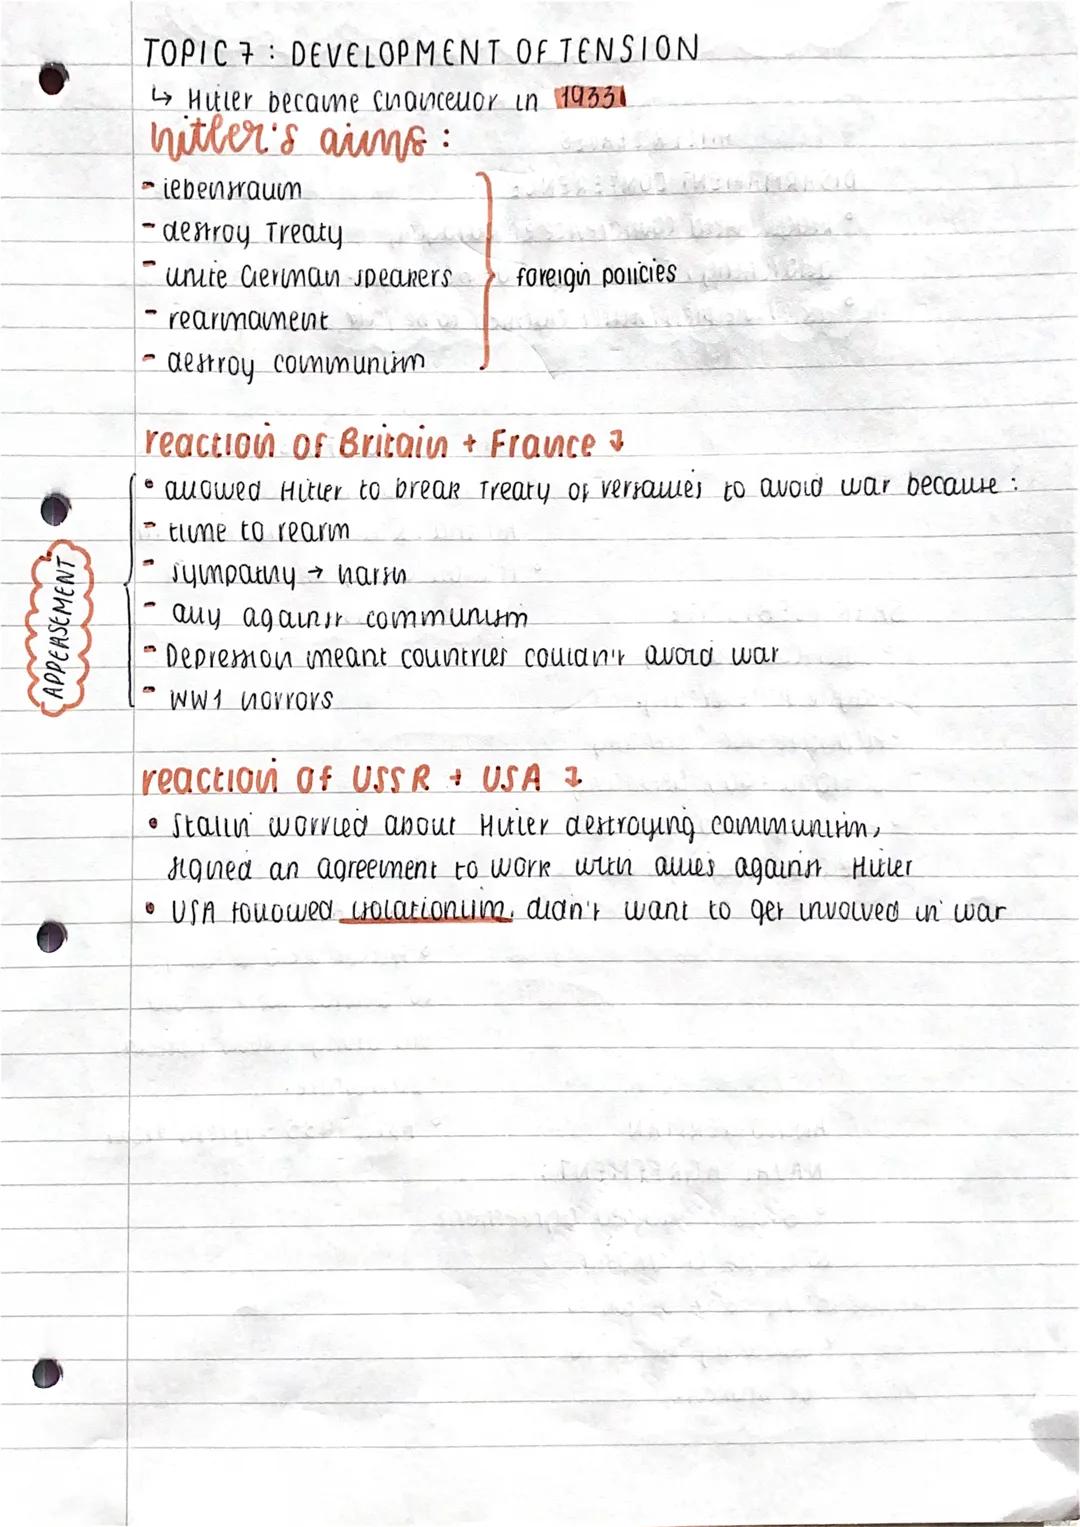 TOPIC 7: DEVELOPMENT OF TENSION
↳ Hitler became chancellor in 1933
hitler's aims:
- lebensraum
- destroy Treaty
- unite German speakers
- rearmament
- destroy communism
foreign policies
reaction of Britain + France ↴
• allowed Hitler to break Treaty of versailles to avoid war because:
- time to rearm
- sympathy → harsh
- ally against communism
- Depression meant countries couldn't avoid war
- WW1 horrors
APPEASEMENT
reaction of USSR + USA ↴
• Stalin worried about Hitler destroying communism,
signed an agreement to work with allies against Hitler
• USA followed isolationism, didn't want to get involved in war